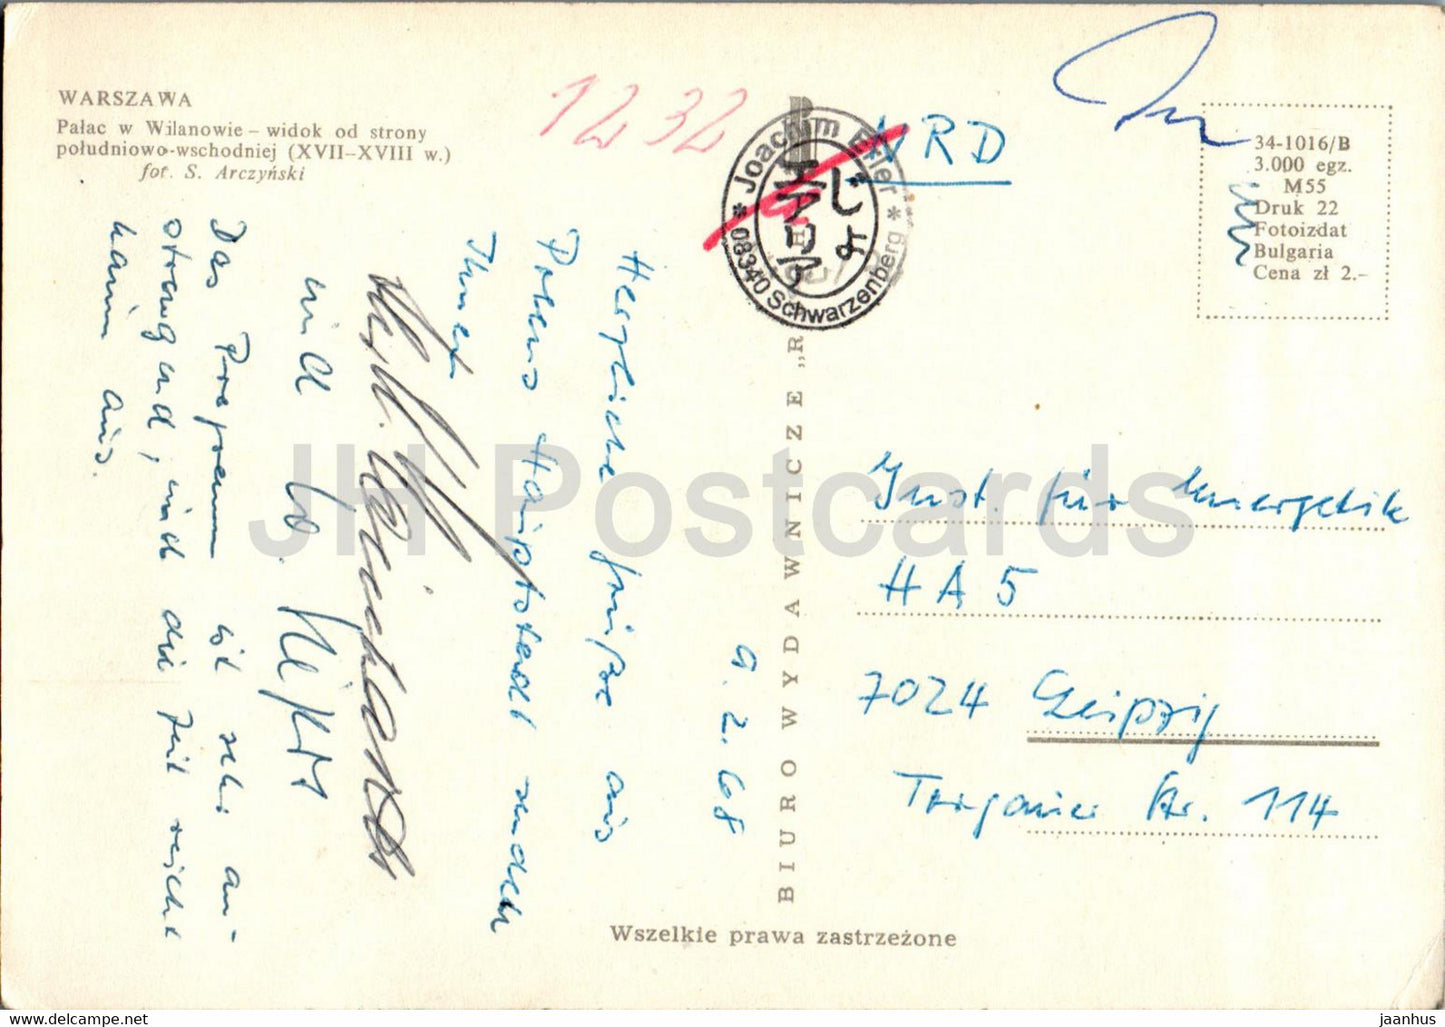 WARSZAWA
Pałac w Wilanowie – widok od strony
południowo-wschodniej (XVII–XVIII w.)
fot. S. Arczyński
1232
NRD
Joachim Erler
* 08340 Schwarzenberg *
34-1016/B
3.000 egz.
M55
Druk 22
Fotoizdat
Bulgaria
Cena zł 2.–
BIURO WYDAWNICZE „R
9.2.68
Herzliche Grüße aus
Polens Hauptstadt senden
Ihnen
und
Das Programm ist sehr an-
strengend, und die Zeit reicht
kaum aus.
Inst. für Energetik
HA 5
7024 Leipzig
Torgauer Str. 114
Wszelkie prawa zastrzeżone
JH Postcards
www.hippostcard.com
jaanhus